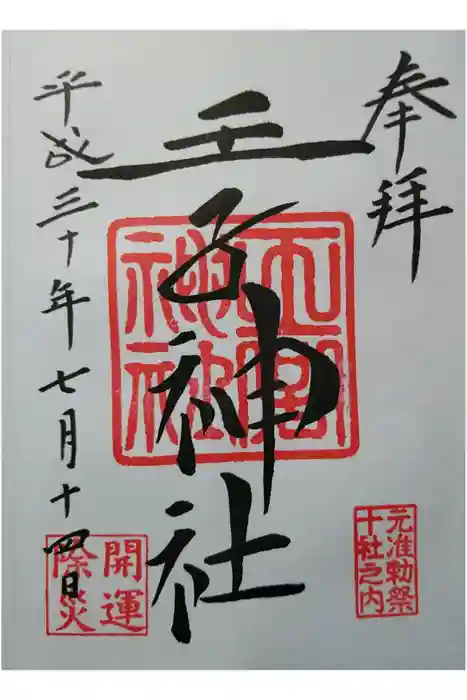 奉拝
王子神社
平成三十年七月十四日
元准勅祭
十社之内
開運
除災